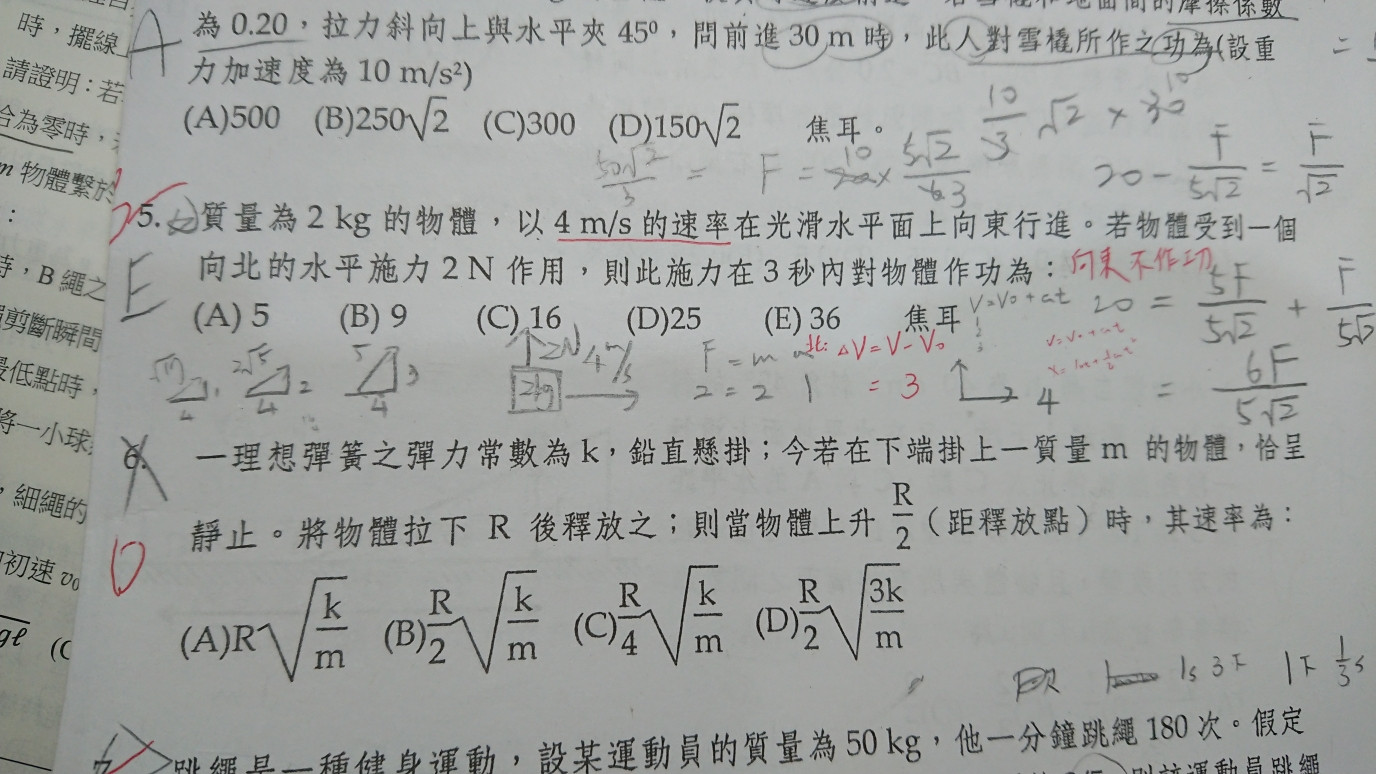 時，擺線
請證明：若
合為零時，
物體繫於
：
時，B 繩之
剪斷瞬間
最低點時，
將一小球
，細繩的
初速 v₀
gℓ (C
的摩擦係數
A 為 0.20，拉力斜向上與水平夾 45⁰，問前進 30 m 時，此人對雪橇所作之功為(設重
力加速度為 10 m/s²)
(A)500 (B)250√2 (C)300 (D)150√2 焦耳。
10/3 √2 × 30 10
50√2/3 = F = 10 × 5√2/6 3
20 - F/5√2 = F/√2
5. 質量為 2 kg 的物體，以 4 m/s 的速率在光滑水平面上向東行進。若物體受到一個
向北的水平施力 2 N 作用，則此施力在 3 秒內對物體作功為：向東不作功
E (A) 5 (B) 9 (C) 16 (D)25 (E) 36 焦耳
V=V₀+at
20 = 5F/5√2 + F/5√2
2√5 4 5 4 3
2N 4m/s 2kg
F = m a
2 = 2 1
北: ΔV=V-V₀
= 3
4
= 6F/5√2
6. 一理想彈簧之彈力常數為 k，鉛直懸掛；今若在下端掛上一質量 m 的物體，恰呈
靜止。將物體拉下 R 後釋放之；則當物體上升 R/2（距釋放點）時，其速率為：
D
(A)R√(k/m) (B)R/2√(k/m) (C)R/4√(k/m) (D)R/2√(3k/m)
1s 3下 1下 1/3s
跳繩是一種健身運動，設某運動員的質量為 50 kg，他一分鐘跳繩 180 次。假定
則該運動員跳繩